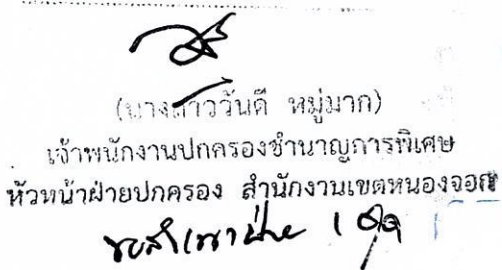 (นางสาววันดี หมู่มาก)
เจ้าพนักงานปกครองชำนาญการพิเศษ
หัวหน้าฝ่ายปกครอง สำนักงานเขตหนองจอก
ขอสำเนา 1 ชุด